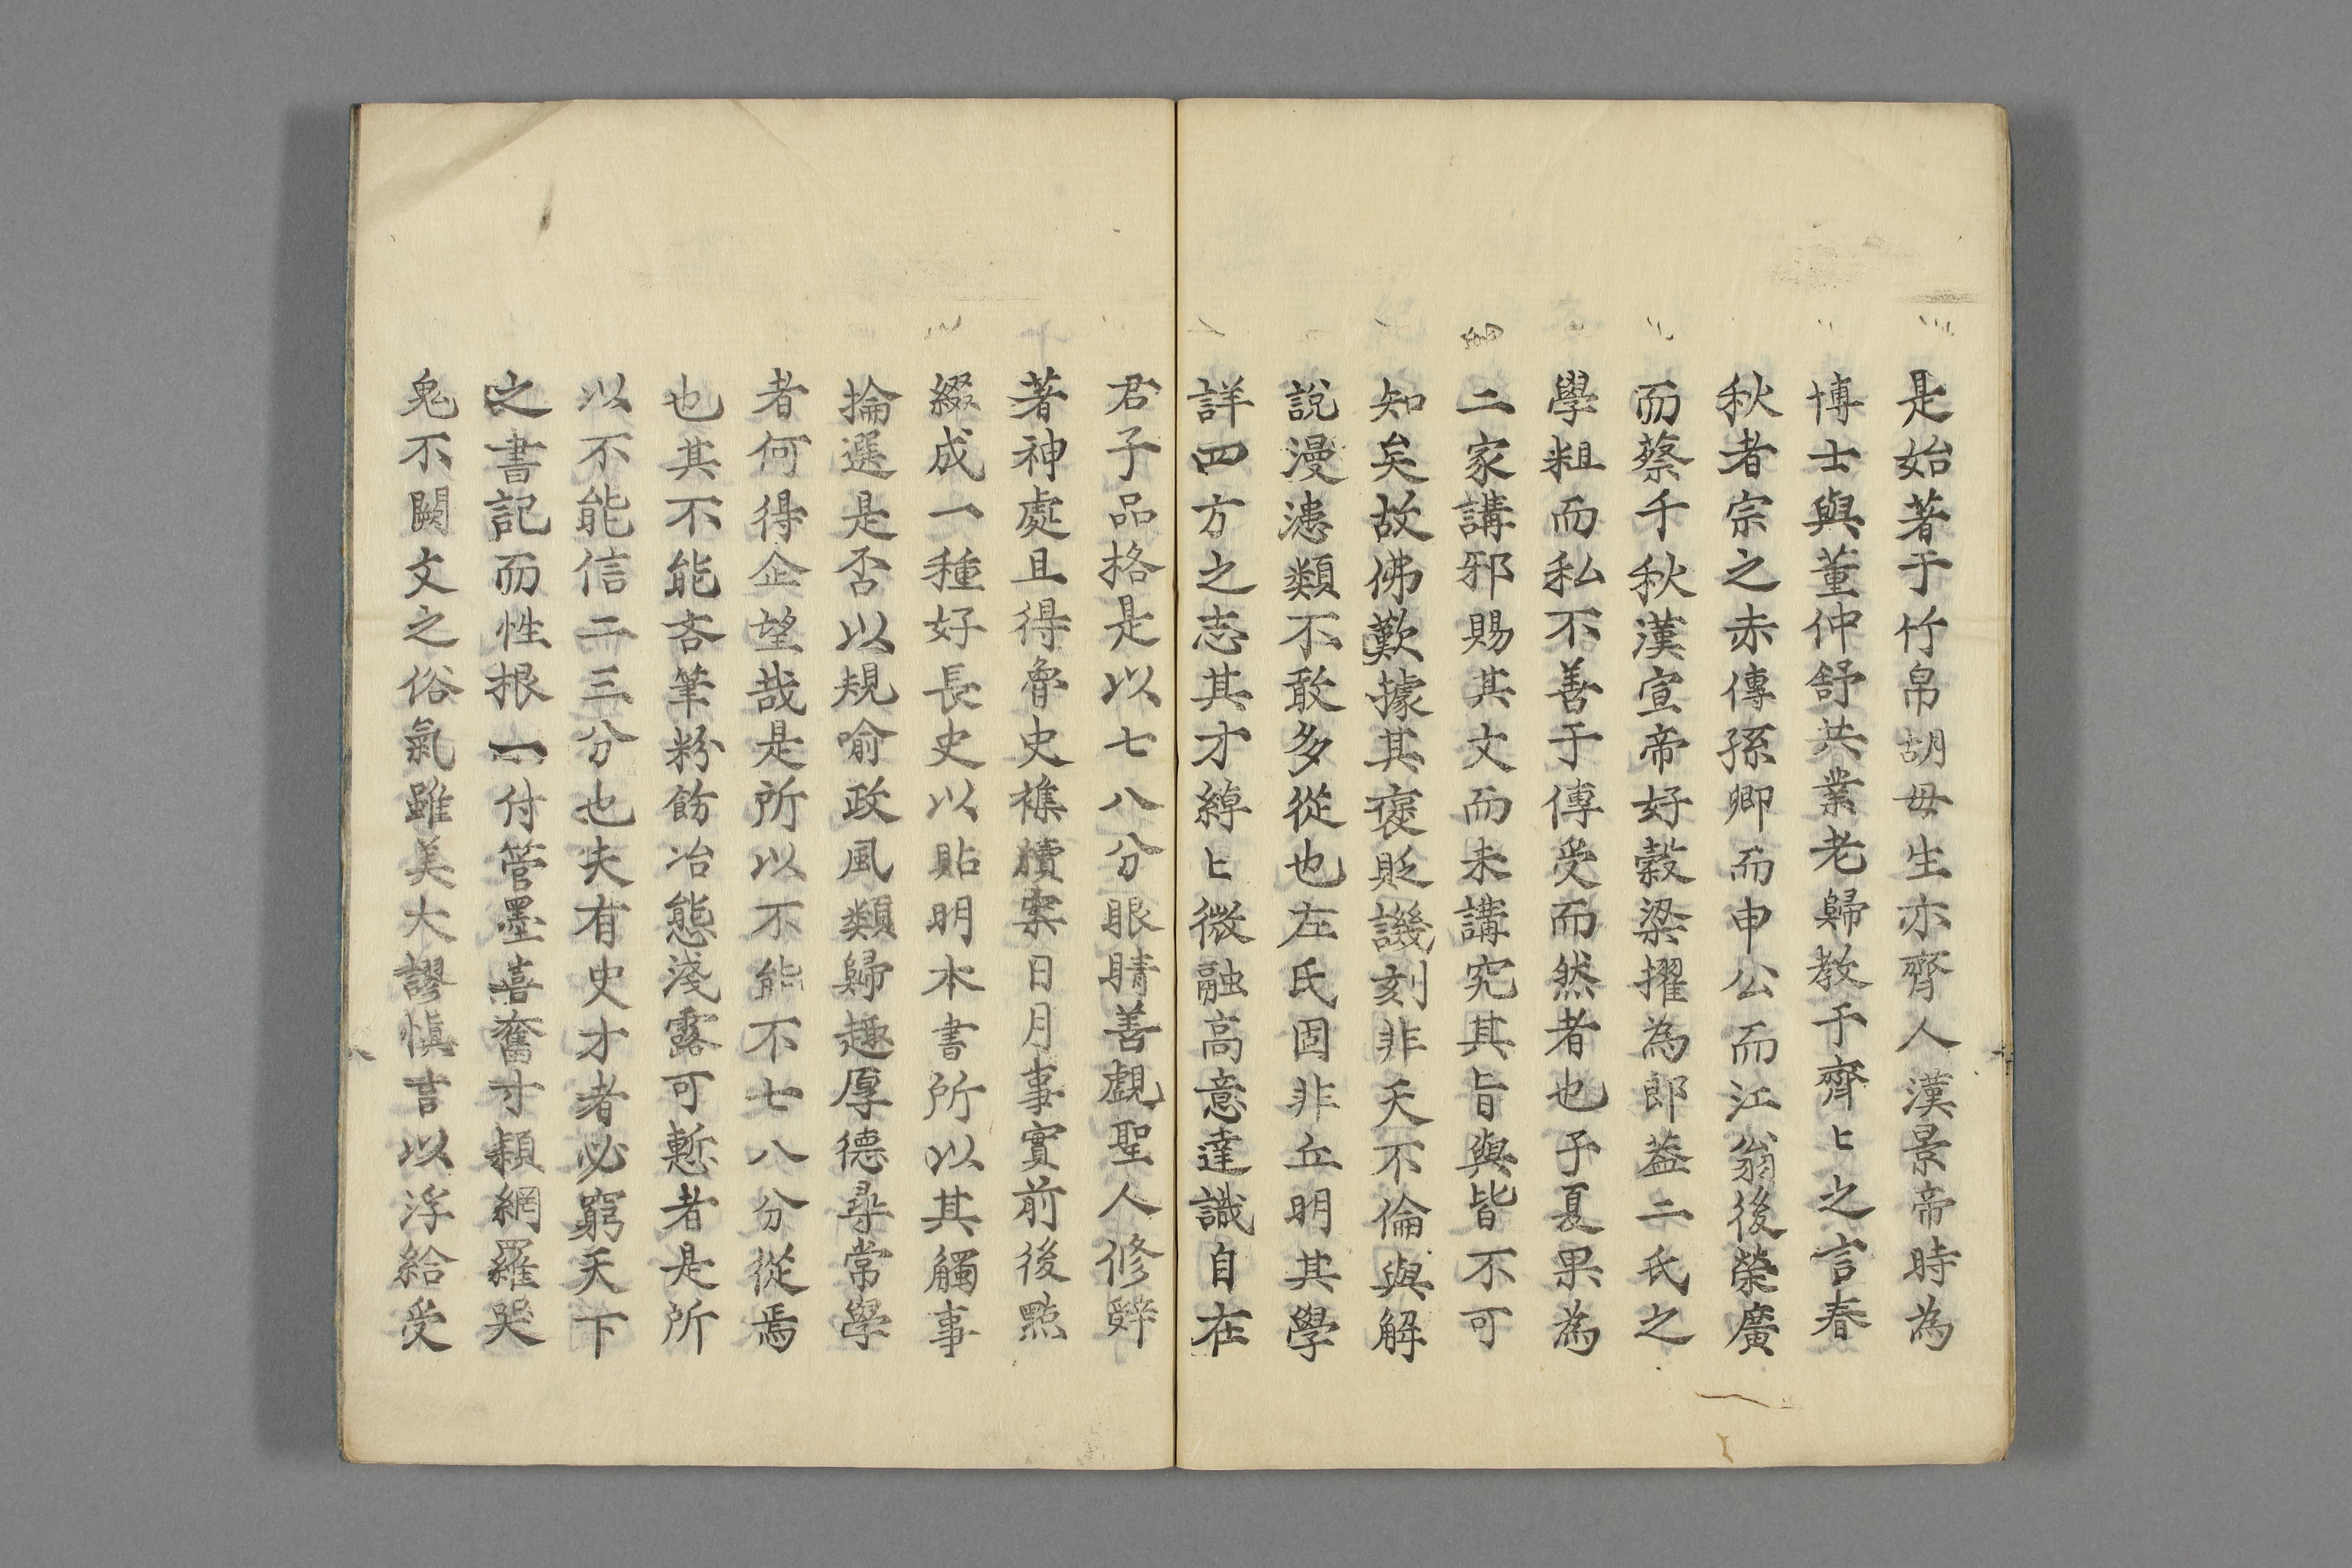 是始著于竹帛胡毋生亦齊人漢景帝時為
博士與董仲舒共業老歸教于齊〻之言春
秋者宗之赤傳孫卿而申公而江翁後榮廣
而蔡千秋漢宣帝好穀梁擢為郎蓋二氏之
學粗而私不善于傳受而然者也予夏果為
二家講邪賜其文而未講究其旨與皆不可
知矣故佛歎據其褒貶譏刻非夭不倫與解
說漫漶類不敢多從也左氏固非丘明其學
詳四方之志其才綽〻微融高意達識自在
君子品格是以七八分眼睛善觀聖人修辭
著神處且得魯史襍牘案日月事實前後㸃
綴成一種好長史以貼明本書所以其觸事
掄選是否以規喻政風類歸趣厚德尋常學
者何得企望哉是所以不能不七八分從焉
也其不能吝筆粉飭冶態淺露可慙者是所
以不能信二三分也夫有史才者必窮天下
之書記而性根一付管墨喜奮寸穎網羅哭
鬼不闕文之俗氣雖美大謬慎言以浮給受